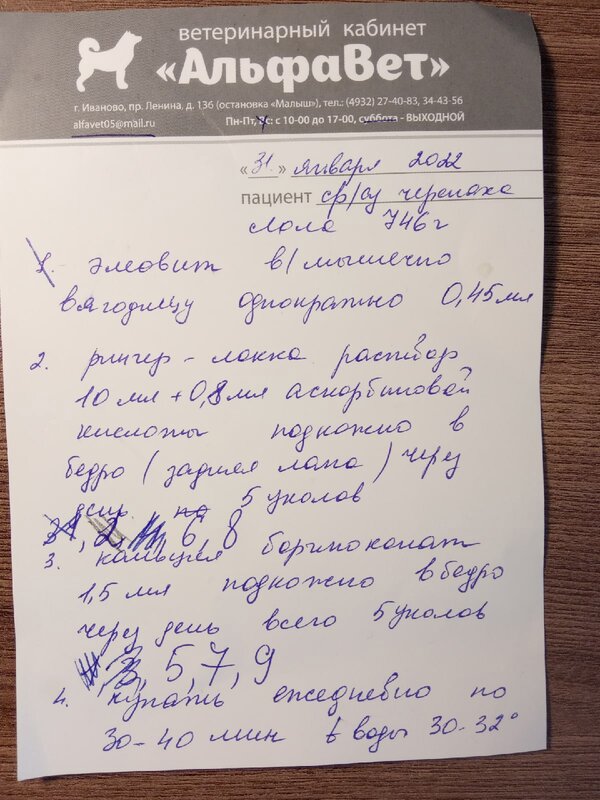 ветеринарный кабинет
«АльфаВет»
г. Иваново, пр. Ленина, д. 136 (остановка «Малыш»), тел.: (4932) 27-40-83, 34-43-56
alfavet05@mail.ru Пн-Пт, Вс: с 10-00 до 17-00, суббота - ВЫХОДНОЙ
«31» января 2022
пациент ср/аз черепаха
Лола 746 г
1. элеовит в/мышечно
в ягодицу однократно 0,45 мл
2. рингер-локка раствор
10 мл + 0,8 мл аскорбиновой
кислоты подкожно в
бедро (задняя лапа) через
день 5 уколов
31, 2, 6, 8
3. кальция борглюконат
1,5 мл подкожно в бедро
через день всего 5 уколов
3, 5, 7, 9
4. купать ежедневно по
30-40 мин t воды 30-32°